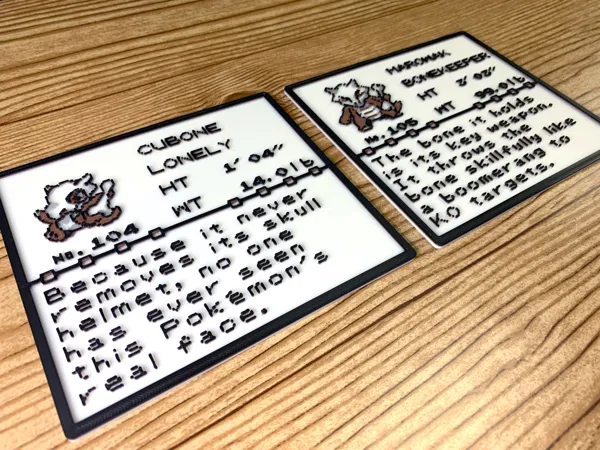 CUBONE
LONELY
HT 1'04"
WT 14.0lb
No.104
Because it never
removes its skull
helmet, no one
has ever seen
this Pokémon's
real face.
MAROWAK
BONEKEEPER
HT 3'03"
WT 99.0lb
No.105
The bone it holds
is its key weapon.
It throws the
bone skillfully like
a boomerang to
KO targets.